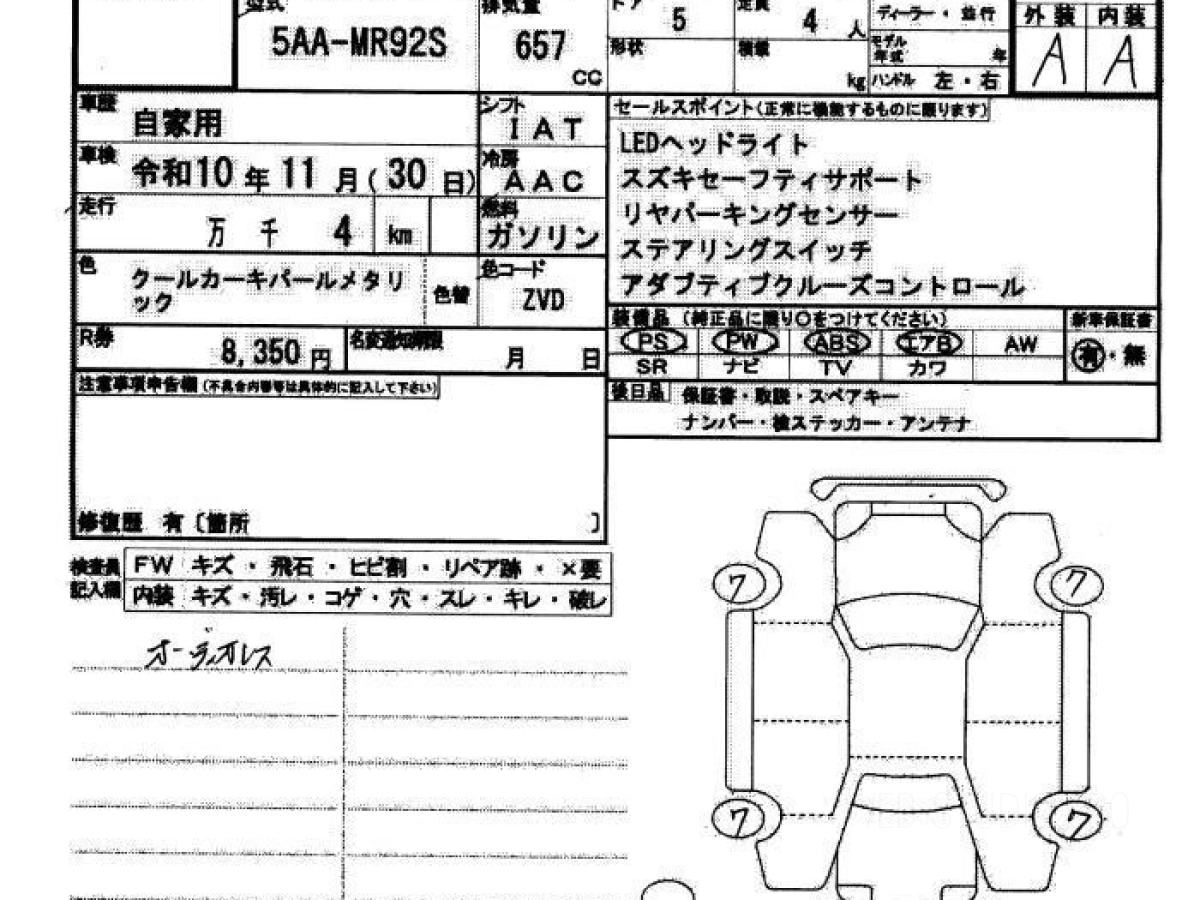 型式 排気量 ドア 定員 ディーラー・並行 外装 内装
5AA-MR92S 657 CC 5 4 人 A A
形状 積載 kg モデル年式 年
ハンドル 左・右
車歴 自家用 シフト IAT
セールスポイント(正常に機能するものに限ります)
車検 令和10年11月(30日) 冷房 AAC
LEDヘッドライト
スズキセーフティサポート
走行 万 千 4 km 燃料 ガソリン
リヤパーキングセンサー
ステアリングスイッチ
アダプティブクルーズコントロール
色 クールカーキパールメタリ
ック 色替 色コード ZVD
装備品 (純正品に限り○をつけてください) 新車保証書
PS PW ABS エアB AW 有・無
SR ナビ TV カワ
R券 8,350円 名変通知期限 月 日
注意事項申告欄(不具合内容等は具体的に記入して下さい)
後日品 保証書・取説・スペアキー
ナンバー・検ステッカー・アンテナ
修復歴 有〔箇所 〕
検査員記入欄
FW キズ・飛石・ヒビ割・リペア跡・×要
内装 キズ・汚レ・コゲ・穴・スレ・キレ・破レ
オーディオレス
7 7
7 7